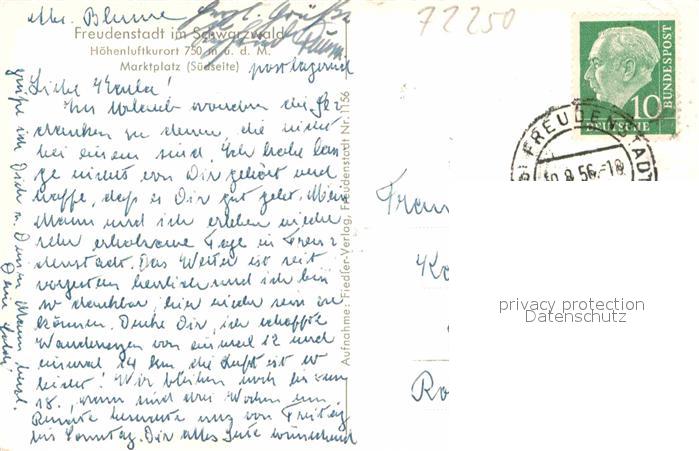 Abs. Blume
herzl. Grüße
Freudenstadt im Schwarzwald
Höhenluftkurort 750 m ü. d. M.
Marktplatz (Südseite)
postlagernd
Liebe
Im Urlaub wandern die Ge-
danken zu denen, die nicht
bei einem sind. Ich habe lan-
ge nichts von Dir gehört und
hoffe, daß es Dir gut geht. Mein
Mann und ich erleben wieder
sehr erholsame Tage in Freu-
denstadt. Das Wetter ist seit
vorgestern herrlich und ich bin
so dankbar, hier wieder sein zu
können. Denke Dir, ich schaffte
Wanderungen von einmal 12 und
einmal 14 km, die Luft ist so
leicht! Wir bleiben noch bis zum
18., dann sind drei Wochen um.
Renate besuchte uns von Freitag
bis Sonntag. Dir alles Gute wünschend
grüße ich Dich u. Deinen Mann herzl.
Deine
Aufnahme: Fiedler-Verlag, Freudenstadt Nr. 1156
72250
10
DEUTSCHE
BUNDESPOST
FREUDENSTADT
8.56.-18
Frau
Ro
privacy protection
Datenschutz